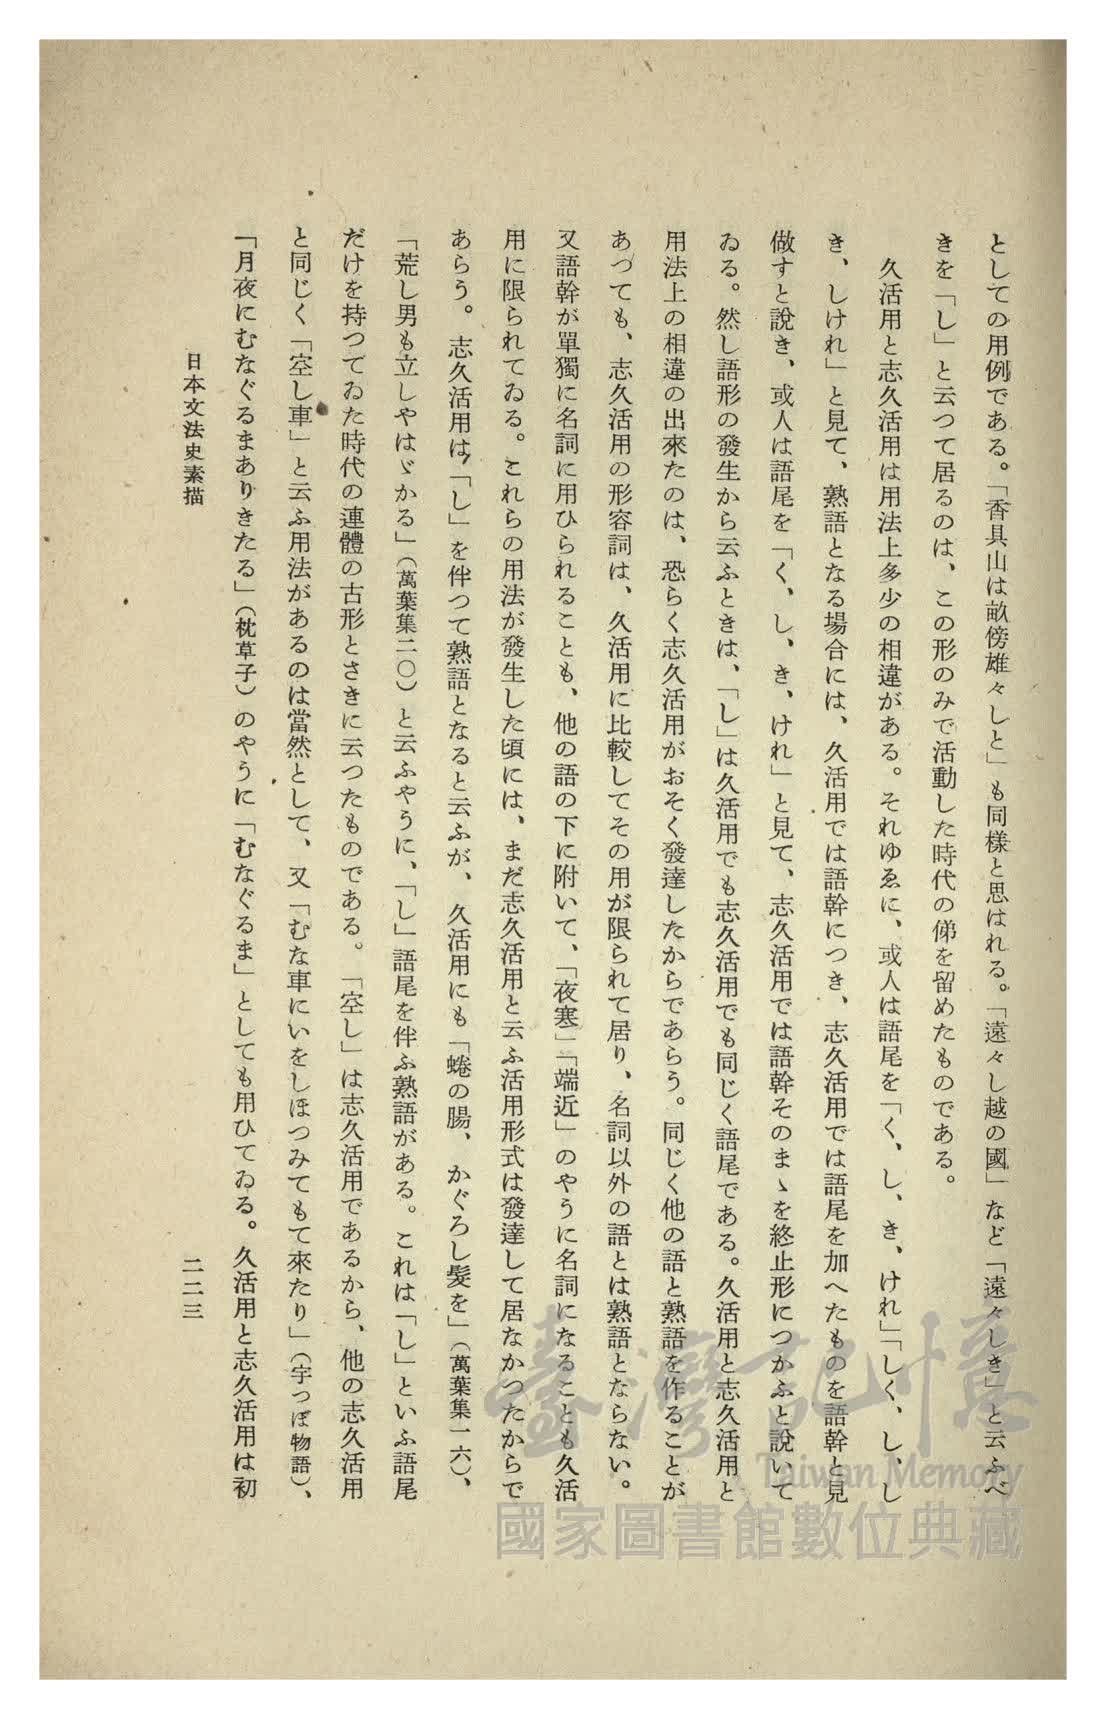 としての用例である。「香具山は畝傍雄々しと」も同樣と思はれる。「遠々し越の國」など「遠々しき」と云ふべ
きを「し」と云つて居るのは、この形のみで活動した時代の俤を留めたものである。
久活用と志久活用は用法上多少の相違がある。それゆゑに、或人は語尾を「く、し、き、けれ」「しく、し、し
き、しけれ」と見て、熟語となる場合には、久活用では語幹につき、志久活用では語尾を加へたものを語幹と見
做すと說き、或人は語尾を「く、し、き、けれ」と見て、志久活用では語幹そのまゝを終止形につかふと說いて
ゐる。然し語形の發生から云ふときは、「し」は久活用でも志久活用でも同じく語尾である。久活用と志久活用と
用法上の相違の出來たのは、恐らく志久活用がおそく發達したからであらう。同じく他の語と熟語を作ることが
あつても、志久活用の形容詞は、久活用に比較してその用が限られて居り、名詞以外の語とは熟語とならない。
又語幹が單獨に名詞に用ひられることも、他の語の下に附いて、「夜寒」「端近」のやうに名詞になることも久活
用に限られてゐる。これらの用法が發生した頃には、まだ志久活用と云ふ活用形式は發達して居なかつたからで
あらう。志久活用は「し」を伴つて熟語となると云ふが、久活用にも「蜷の腸、かぐろし髮を」（萬葉集一六）、
「荒し男も立しやはゞかる」（萬葉集二〇）と云ふやうに、「し」語尾を伴ふ熟語がある。これは「し」といふ語尾
だけを持つてゐた時代の連體の古形とさきに云つたものである。「空し」は志久活用であるから、他の志久活用
と同じく「空し車」と云ふ用法があるのは當然として、又「むな車にいをしほつみてもて來たり」（宇つぼ物語）、
「月夜にむなぐるまありきたる」（枕草子）のやうに「むなぐるま」としても用ひてゐる。久活用と志久活用は初
日本文法史素描
二二三
臺灣記憶
Taiwan Memory
國家圖書館數位典藏